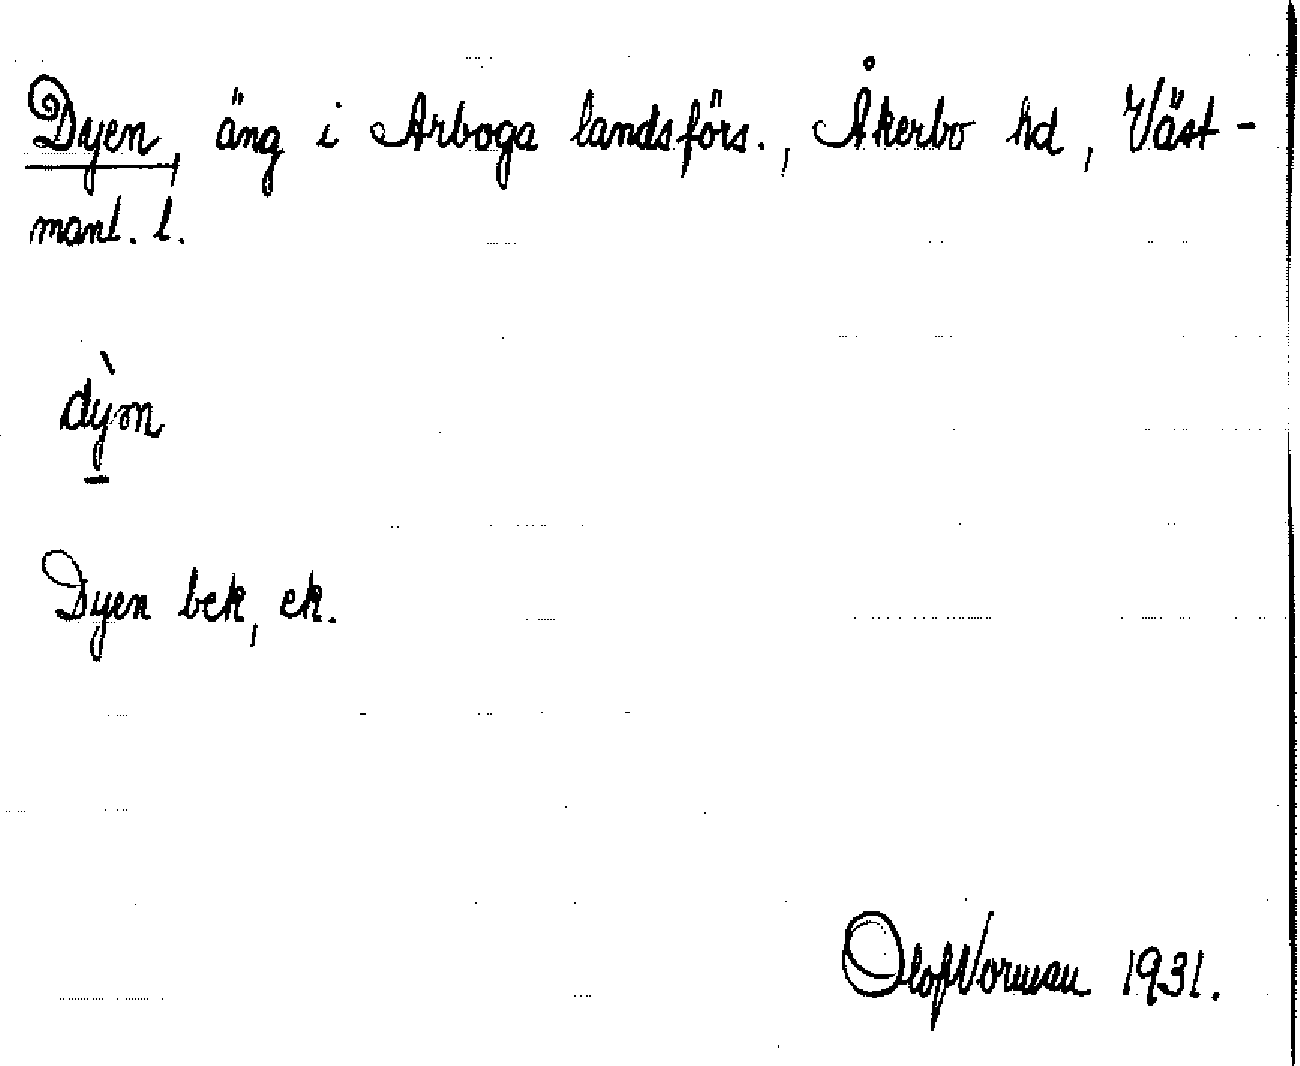 Dyen, äng i Arboga landsförs., Åkerbo hd, Väst-
manl. l.
dỳən
Dyen bek, ek.
Olof Norman 1931.